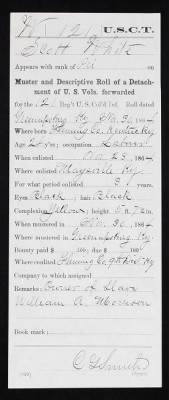 W. 121 U.S.C.T.
Scott White
Appears with rank of Pri
Muster and Descriptive Roll of a Detach-
ment of U. S. Vols. forwarded
for the 12 Reg't U.S. Col'd Inf. Roll dated
Ky. Nov 30, 1864
Where born Fleming Co. Kentucky
Age 24 y'rs; occupation Laborer
When enlisted Nov 25, 1864
Where enlisted Maysville Ky.
For what period enlisted 3 years.
Eyes Black; hair Black
Complexion Yellow; height 5 ft. 7½ in.
When mustered in Nov. 30, 1864
Where mustered in Ky.
Bounty paid $ 100; due $ 100
Where credited Fleming Co. 9th Dist Ky
Company to which assigned
Remarks: Owner of Slave
William A. Morrison
Book mark: